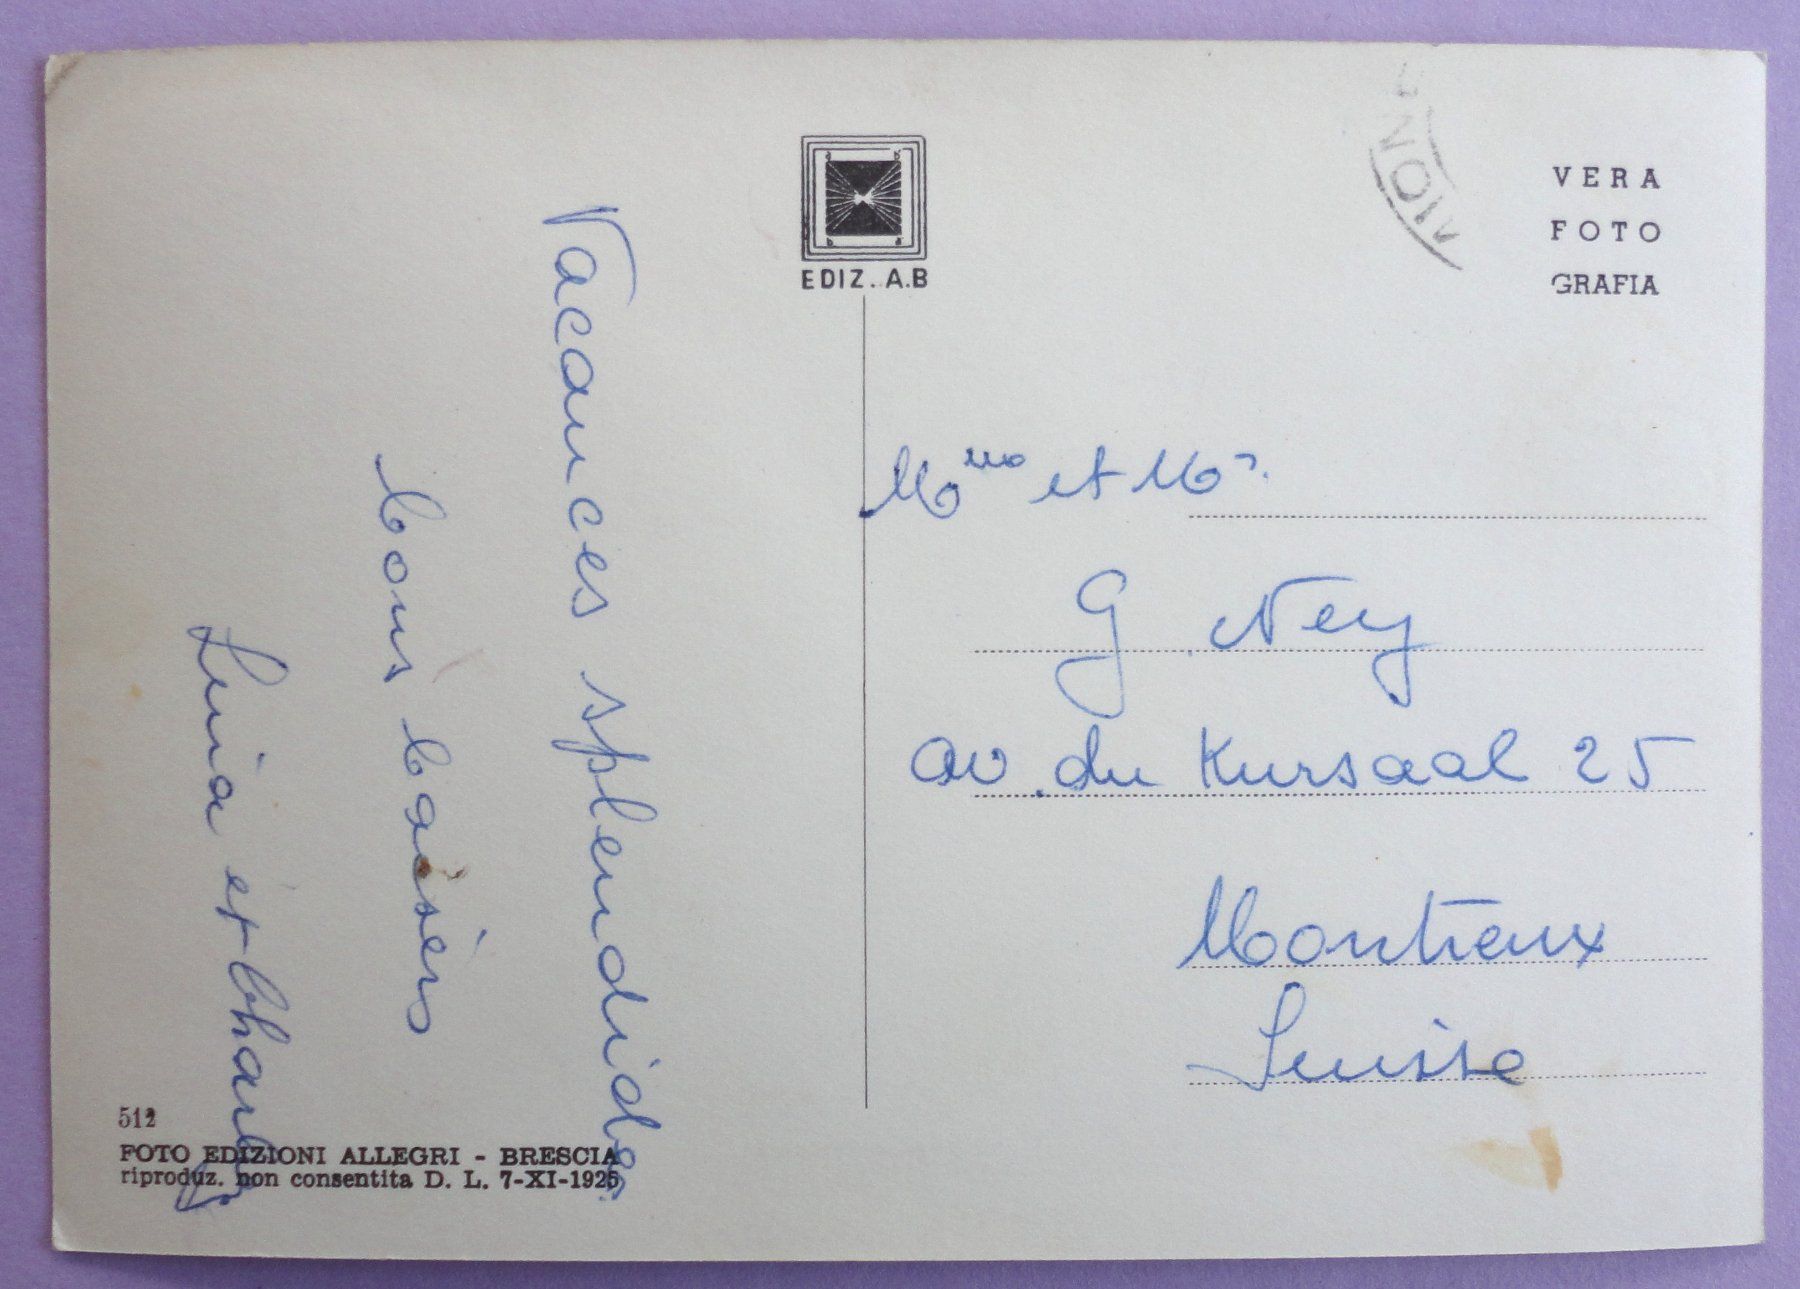 Vacances splendides.
bons baisers
et Charly
EDIZ. A.B
VERA
FOTO
GRAFIA
Mme et Mr.
G. Ney
av. du Kursaal 25
Montreux
Suisse
512
FOTO EDIZIONI ALLEGRI - BRESCIA
riproduz. non consentita D. L. 7-XI-1925